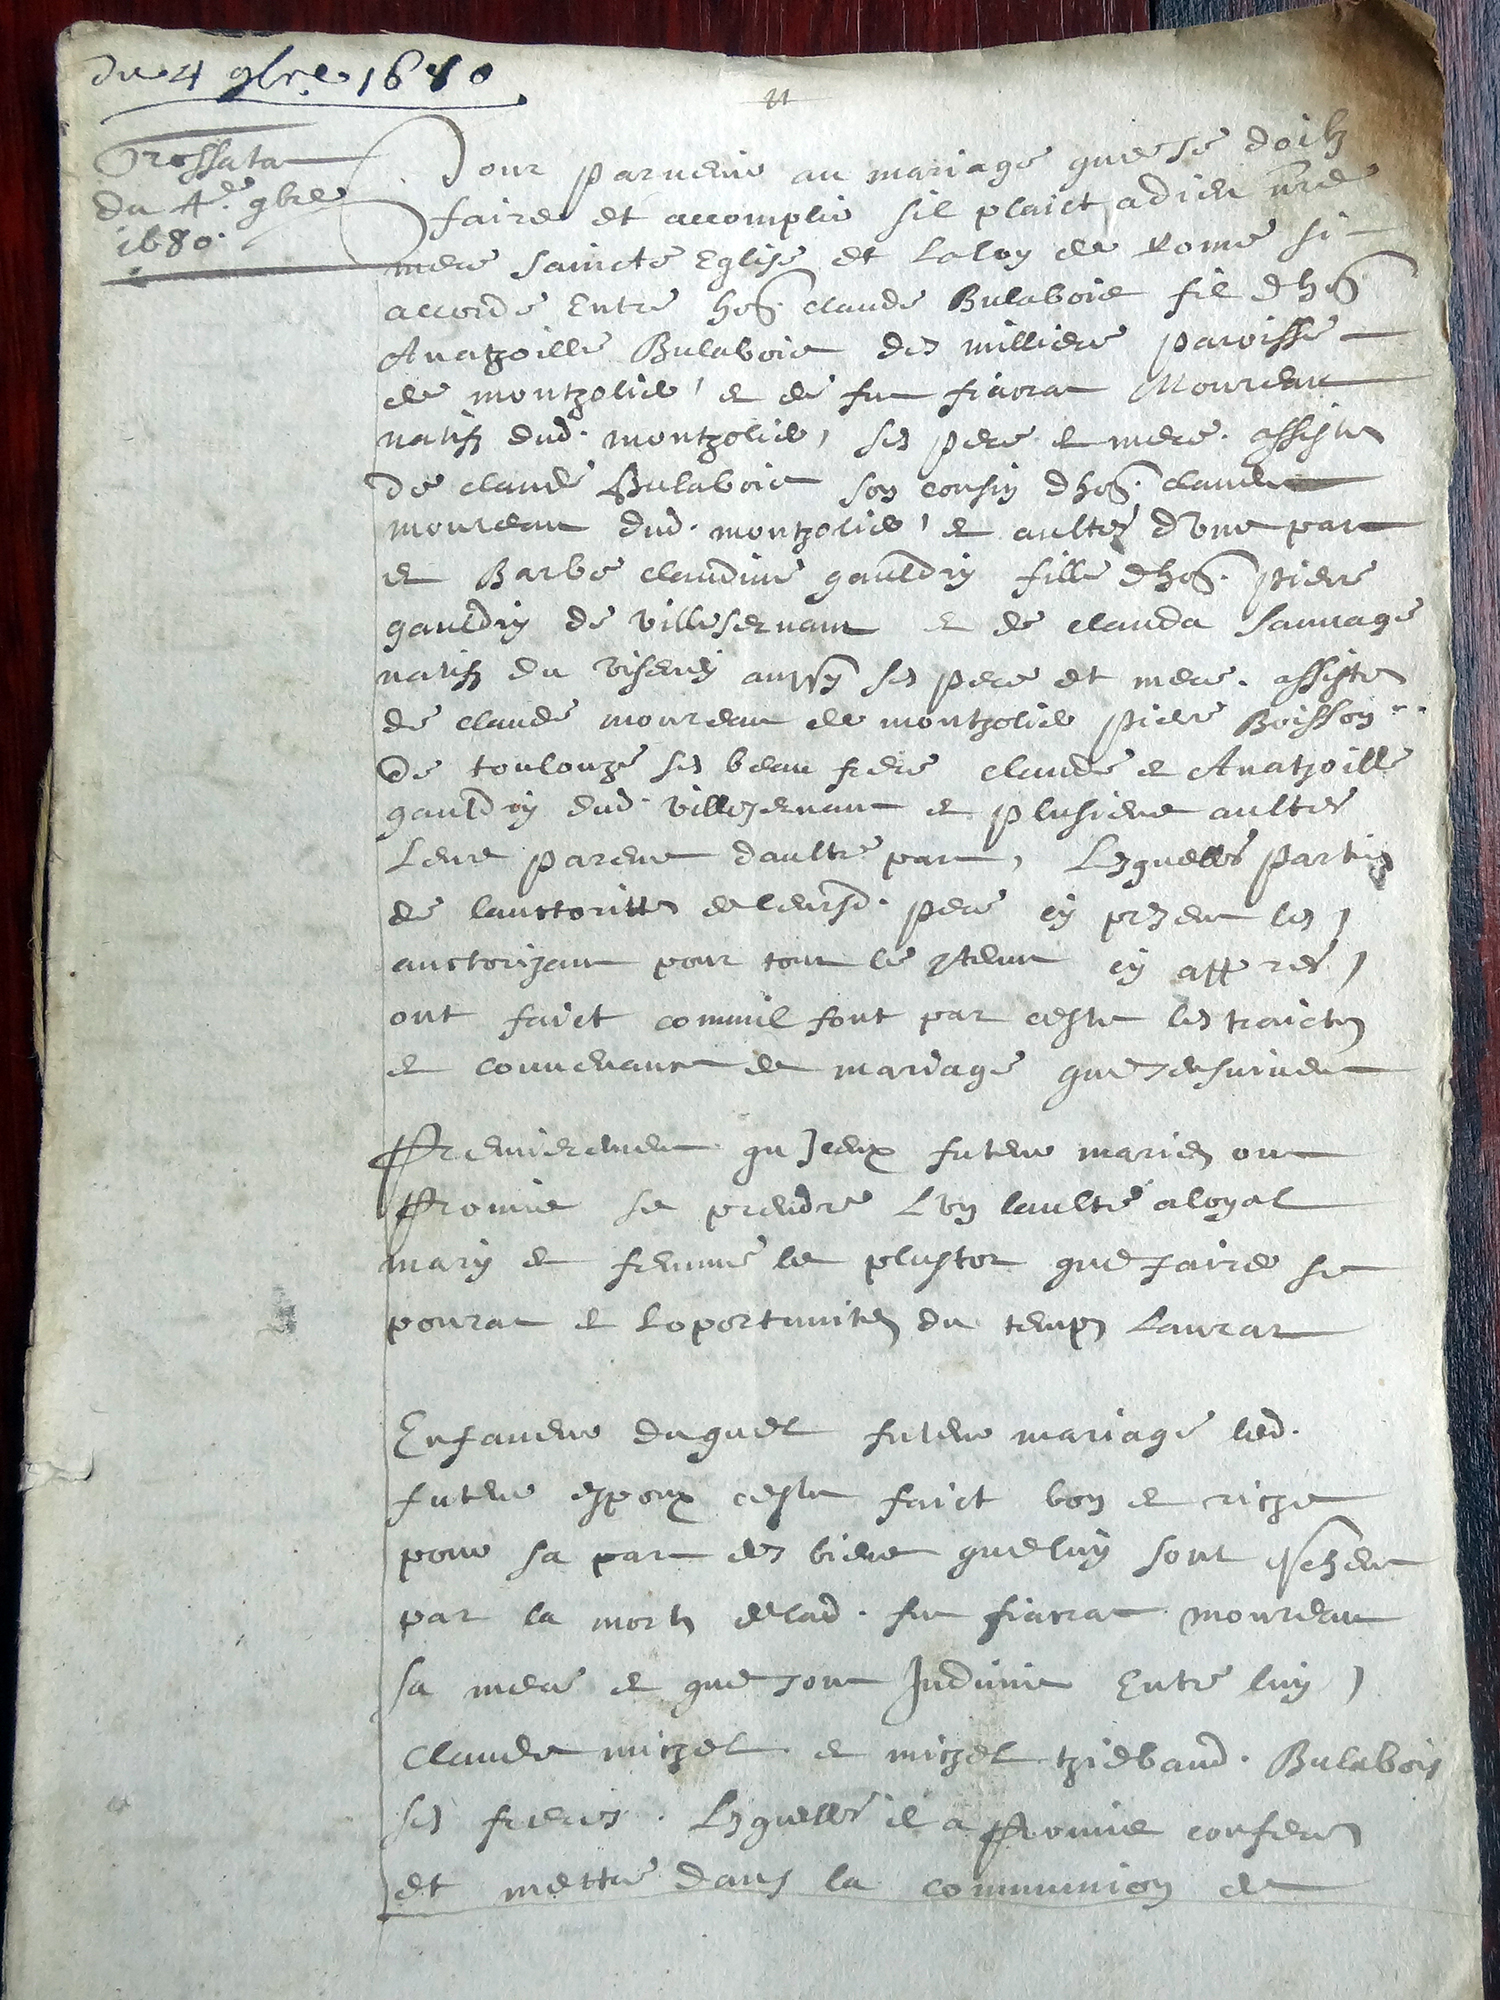 du 4 9bre 1680
Tressata
du 4e. 9bre
1680.
Pour parvenir au mariage que se doibt
faire et accomplir sil plaict a dieu nre
mere saincte Eglise et la loy de Rome si
accorde Entre hoñ. claude Bulabois fil dhoñ
Anathoille Bulabois des milliere paroisse
de montholier, et de fut fiacra Moureau
natifz dud. montholier, ses pere et mere. assiste
de claude Bulabois son cousin dhoñ. claude
moureau dud. montholier, et aultes dune part
et Barbe claudine gauldry fille dhoñ. piere
gauldry de villeservant et de clauda sauvage
natifz du viseney aussy ses pere et mere. assiste
de claude moureau de montholier piere Boisson
de toulouze ses beau frere claude et Anathoille
gauldry dud. villeservant et plusieur aultes
leur parent daultre part, Lesquelles parties
de lauctoritte de leursd. pere cy present les
auctorizant pour tout le contenu cy appres,
ont faict comme il font par ceste les traictes
et convenance de mariage que sensuivent
Premierement qu Jceux futeur maries ont
Promis se prendre Lun laultre a loyal
mary et femme le plustot que faire se
pourat et loportunites du temps laurat
En faveur duquel futeur mariage led.
futeur espoux cest faict bon et riche
pour sa part des bien que luy sont escheut
par la mort de lad. fut fiacra moureau
sa mere et que sont Indivis Entre luy,
claude michel et michel thiebaud. Bulabois
ses freres. Lesquelles il a promis conferer
et mettre dans la communion de